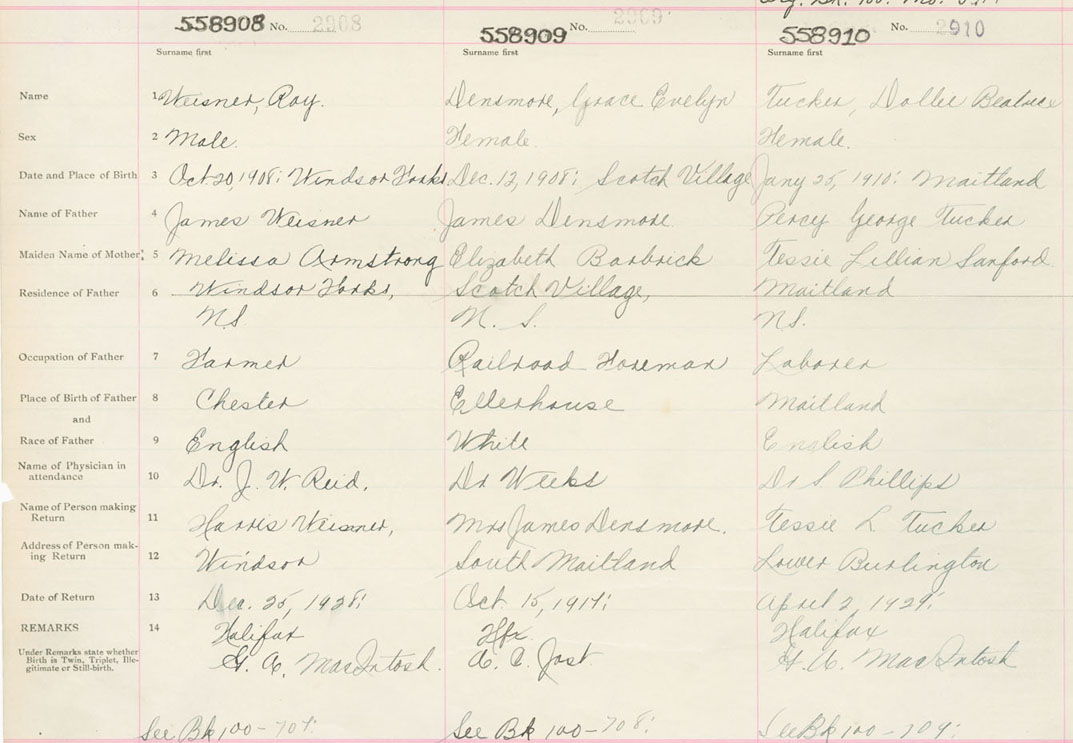 558908 No. 2908 558909 No. 2909 558910 No. 2910
Surname first Surname first Surname first
Name 1 Weisner, Roy. Densmore, Grace Evelyn Tucker, Dollie Beatrice
Sex 2 Male. Female. Female.
Date and Place of Birth 3 Oct. 20, 1908: Windsor Forks Dec. 12, 1908: Scotch Village Jany 25, 1910: Maitland
Name of Father 4 James Weisner James Densmore Percy George Tucker
Maiden Name of Mother 5 Melissa Armstrong Elizabeth Barbrick Tessie Lillian Sanford
Residence of Father 6 Windsor Forks, Scotch Village, Maitland
N.S. N. S. N.S.
Occupation of Father 7 Farmer Railroad Foreman Laborer
Place of Birth of Father 8 Chester Ellerhouse Maitland
and
Race of Father 9 English White English
Name of Physician in
attendance 10 Dr. J. W. Reid. Dr Weeks Dr S Phillips
Name of Person making
Return 11 Harris Weisner, Mrs James Densmore. Tessie L Tucker
Address of Person mak-
ing Return 12 Windsor South Maitland Lower Burlington
Date of Return 13 Dec. 25, 1928: Oct 15, 1917: April 2, 1929:
REMARKS 14 Halifax Hfx. Halifax
Under Remarks state whether
Birth is Twin, Triplet, Ille-
gitimate or Still-birth. G. A. MacIntosh. A. C. Jost G. A. MacIntosh
See Bk 100-707: See Bk 100-708: See Bk 100-709: